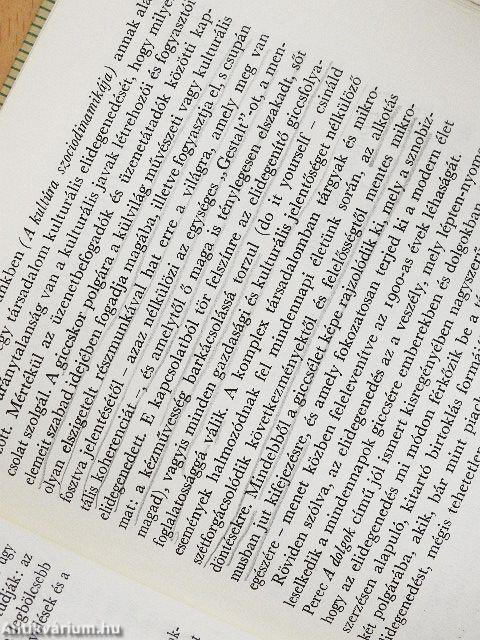 ökben (A kultúra szociodinamikája) annak alá
gy társadalom kulturális elidegenedését, hogy milye
aránytalanság van a kulturális javak létrehozói és fogyasztói
zött. Mértékül az üzenetbefogadók és üzenetátadók közötti kap-
csolat szolgál. A giccskor polgára a külvilág művészeti vagy kulturális
elemeit szabad idejében fogadja magába, illetve fogyasztja el, s csupán
olyan elszigetelt részmunkával hat erre a világra, amely meg van
fosztva jelentésétől – azaz nélkülözi az egységes „Gestalt”-ot, a men-
tális koherenciát –, és amelytől ő maga is ténylegesen elszakadt, sőt
elidegenedett. E kapcsolatból tör felszínre az elidegenítő giccsfolya-
mat: a kézművesség barkácsolássá torzul (do it yourself – csináld
magad), vagyis minden gazdasági és kulturális jelentőséget nélkülöző
foglalatossággá válik. A komplex társadalomban tárgyak és mikro-
események halmozódnak fel mindennapi életünk során, az alkotás
szétforgácsolódik következményektől és felelősségtől mentes mikro-
döntésekre. Mindebből a giccsélet képe rajzolódik ki, mely a sznobiz-
musban jut kifejezésre, és amely fokozatosan terjed ki a modern élet
egészére – menet közben felelevenítve az 1900-as évek léhaságát.
Röviden szólva, az elidegenedés az a veszély, mely lépten-nyomo
leselkedik a mindennapok giccsére emberekben és dolgokban
Perec A dolgok című jól ismert kisregényében nagyszerű
hogy az elidegenedés mi módon férkőzik be a tá
szerzésen alapuló, kitartó birtoklás formáj
két polgárába, akik, bár mint piac
lidegenedést, mégis tehetetlen
ogy
tudják: az
gebölcsebb
ések és a
k-
Antikvárium.hu